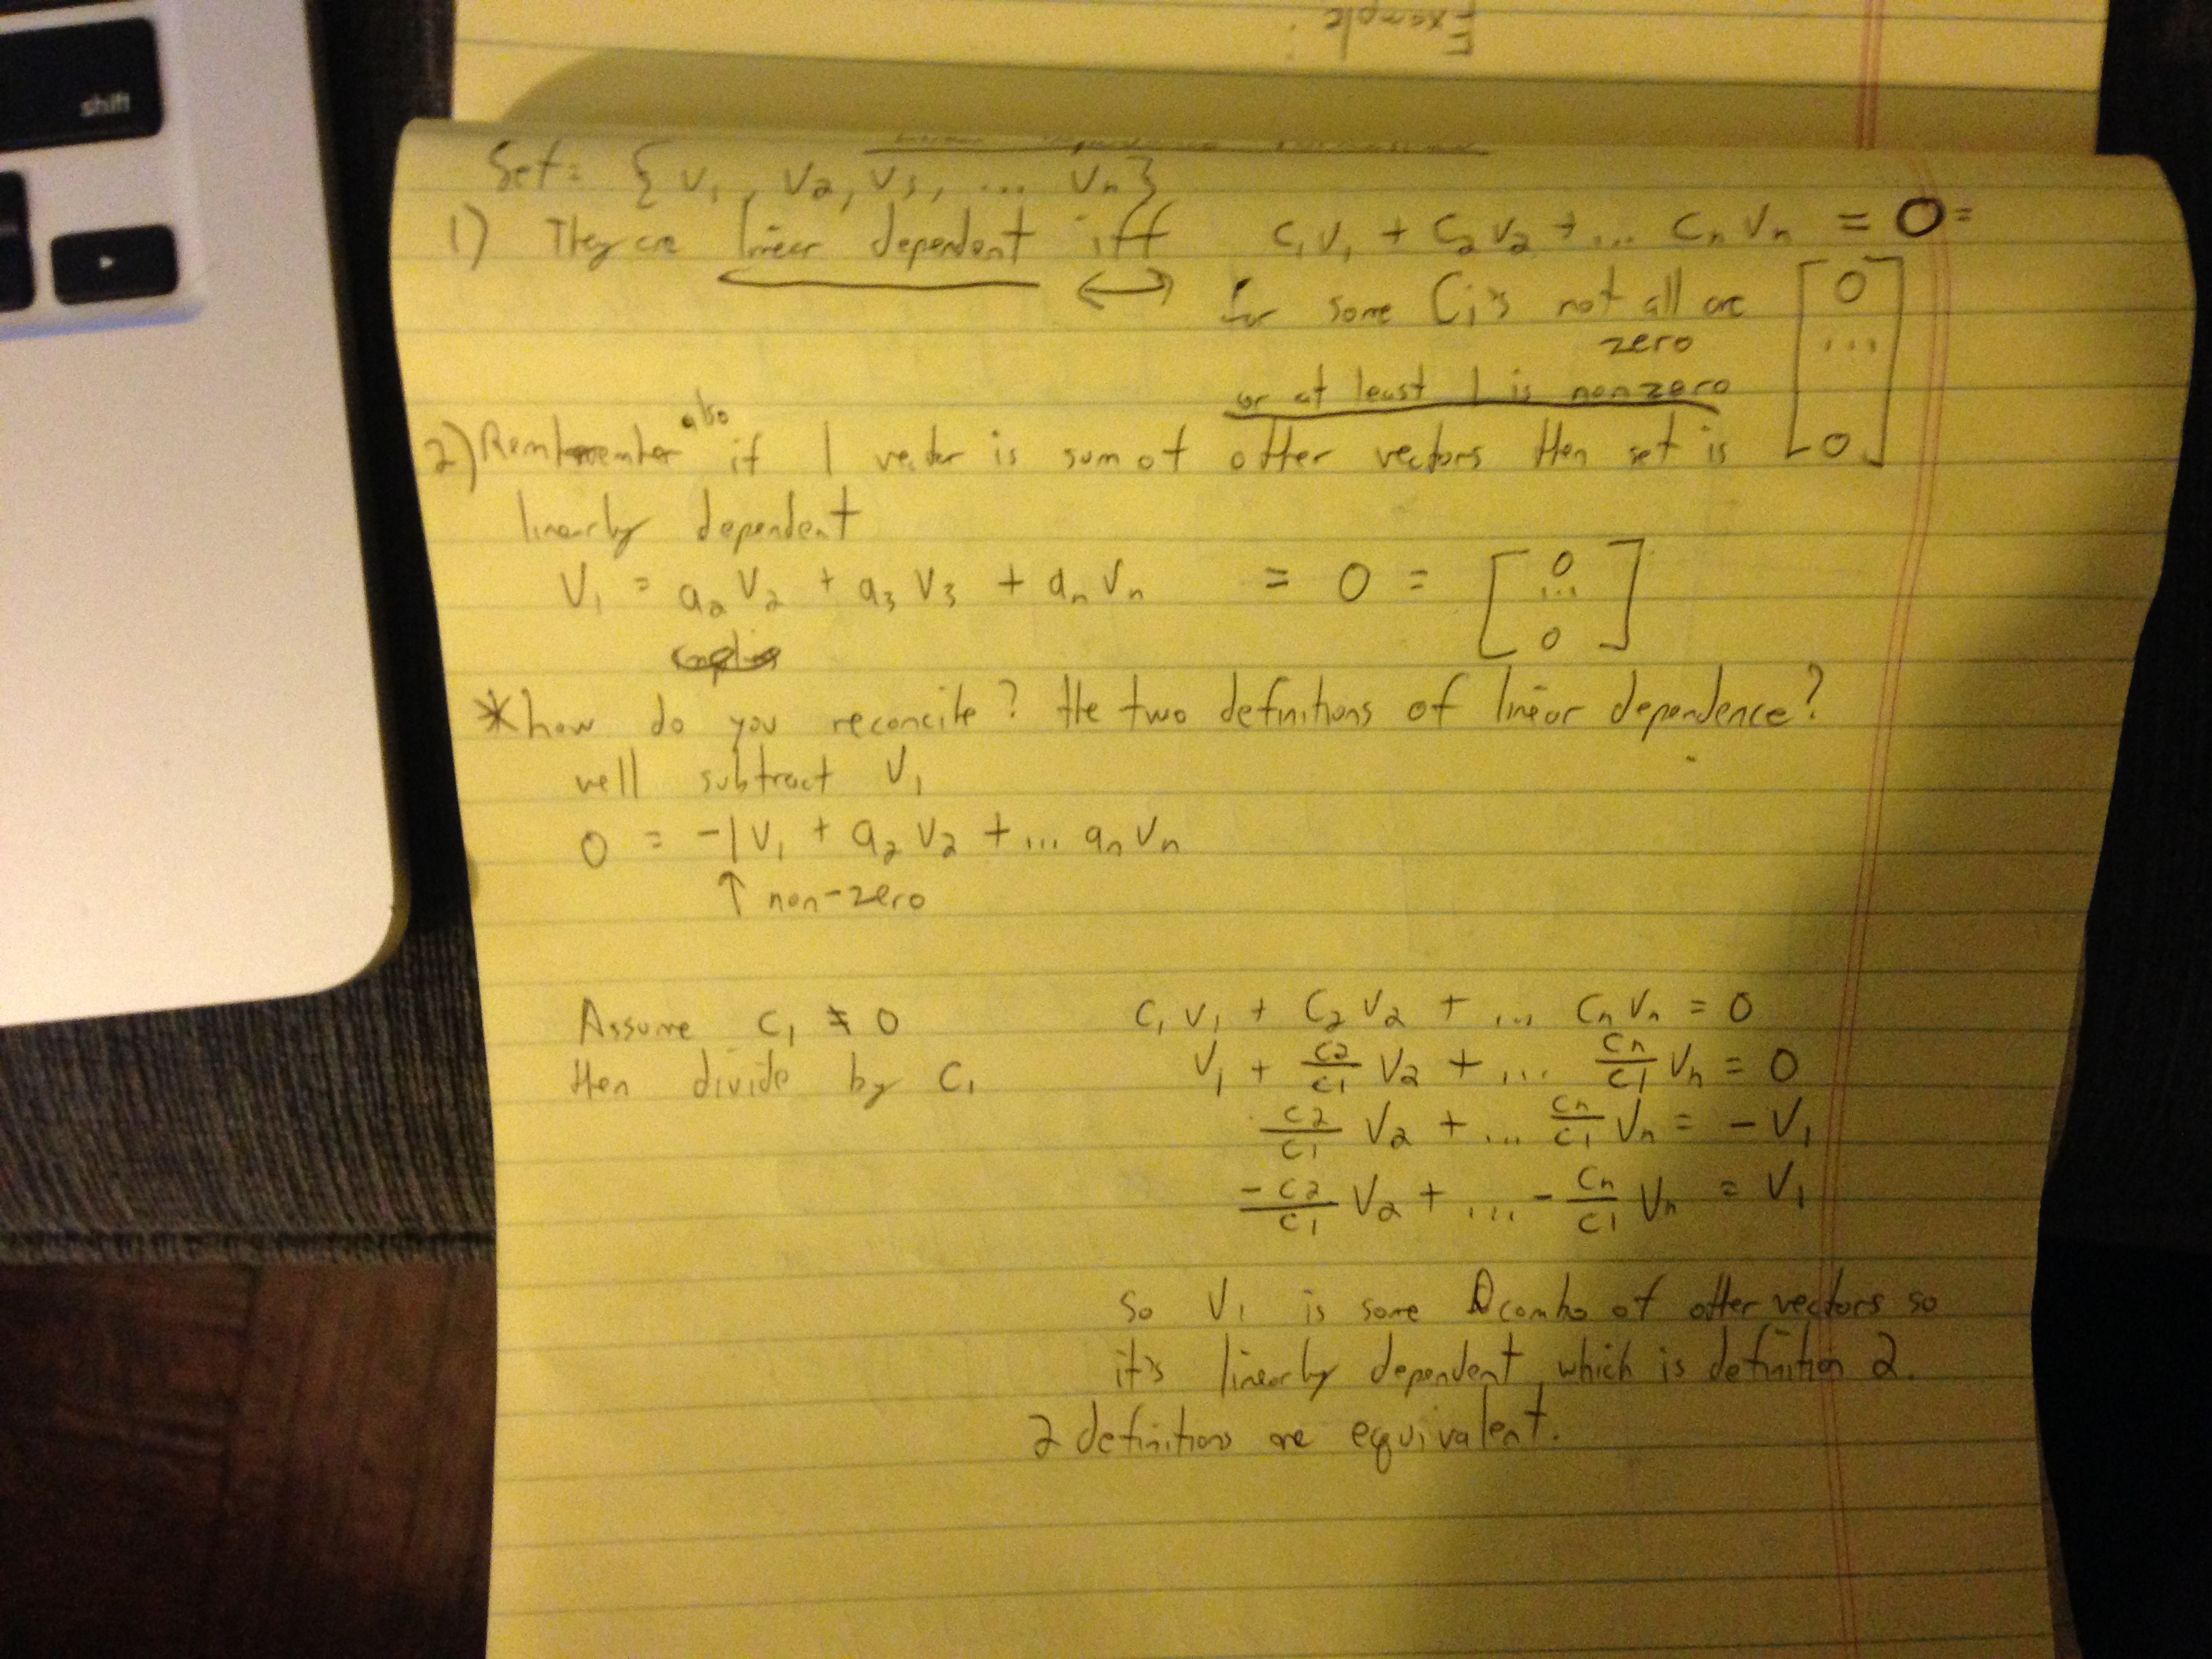 Example:
Set = { v₁, v₂, v₃, ... vₙ}
1) They are linear dependent iff c₁v₁ + c₂v₂ + ... cₙvₙ = 0 =
[0 ... 0]
↔ for some Ci's not all are
zero
or at least 1 is nonzero
2) Remember also if 1 vector is sum of other vectors then set is
linearly dependent
v₁ = a₂v₂ + a₃v₃ + aₙvₙ = 0 = [0 ... 0]
*how do you reconcile? the two definitions of linear dependence?
well subtract v₁
0 = -1v₁ + a₂v₂ + ... aₙvₙ
↑ non-zero
Assume c₁ ≠ 0 c₁v₁ + c₂v₂ + ... cₙvₙ = 0
then divide by c₁ v₁ + c₂/c₁ v₂ + ... cₙ/c₁ vₙ = 0
c₂/c₁ v₂ + ... cₙ/c₁ vₙ = -v₁
-c₂/c₁ v₂ + ... -cₙ/c₁ vₙ = v₁
So v₁ is some combo of other vectors so
it's linearly dependent which is definition 2.
2 definitions are equivalent.
shift